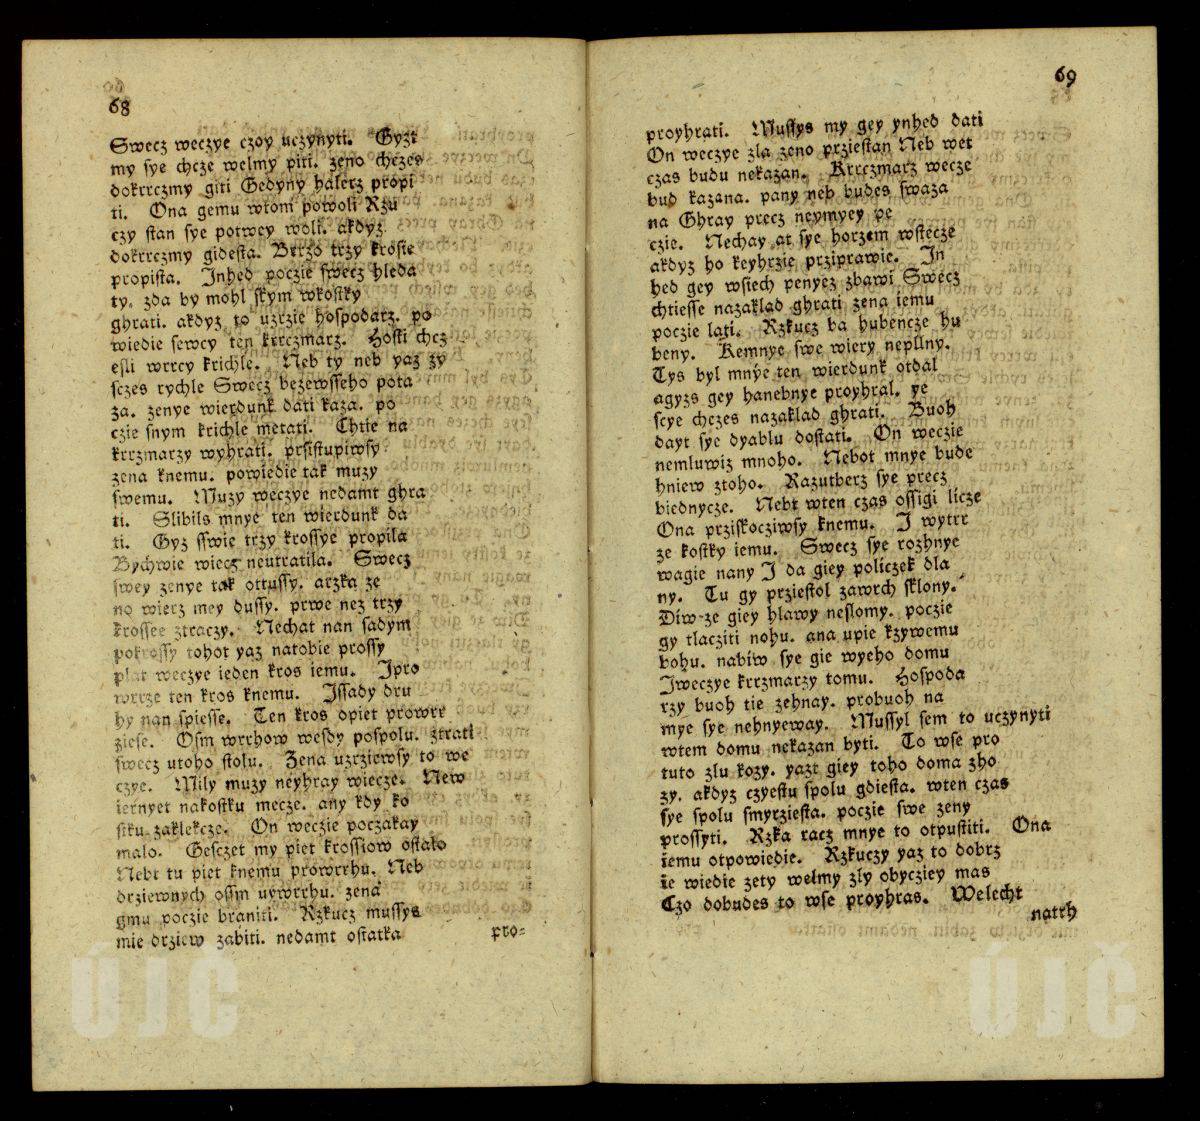 68
Swecz weczye czoy uczynyti. Gyzt
my sye chcze welmy piti. zeno chczes
dokrrczmy giti Gedyny halerz propi
ti. Ona gemu wtom powoli Rzu
czy stan sye potwey woli. akdyz
dokrrczmy gidesta. Berzo trzy krosse
propista. Inhed poczie swecz hleda
ty. zda by mohl skym wkostky
ghrati. akdyz to uzrzie hospodarz. po
wiedie sewcy ten krrczmarz. Hosti chcz
esli wrrcy krichle. Neb ty neb yaz zy
sczes rychle Swecz bezewsseho pota
za. zenye wierdunk dati kaza. po
czie snym krichle metati. Chtie na
krrzmarzy wyhrati. prsistupiwsy
zena knemu. powiedie tak muzy
swemu. Muzy weczye nedamt ghra
ti. Slibils mnye ten wierdunk da
ti. Gyz sswie trzy krossye propila
Bychwie wiecz neutratila. Swecz
swey zenye tak ottussy. arzka ze
no wierz mey dussy. prwe nez trzy
krossee ztraczy. Nechat nan sadym
pokrossy tohot yaz natobie prossy
plat weczye ieden kros iemu. Ipro
wrrze ten kros knemu. Issady dru
hy nan spiesse. Ten kros opiet prowrr
ziese. Osm wrrhow wesdy pospolu. ztrati
swecz utoho stolu. Zena uzrziewsy to we
czye. Mily muzy neyhray wiecze. New
iernyet nakostku mecze. any kdy ko
stku zaklekcze. On weczie poczakay
malo. Gesczet my piet krossiow ostalo
Nebt tu piet knemu prowrrhu. Neb
drziewnych ossm uywrrhu. zena
gmu poczie braniti. Rzkucz mussys
mie drziew zabiti. nedamt ostatka
pro=
69
proyhrati. Mussys my gey ynhed dati
On weczye zla zeno prziestan Neb wet
czas budu nekazan. Krrczmarz wecze
bud kazana. pany neb budes swaza
na Ghray precz neymyey pe
czie. Nechay at sye horzem wstecze
akdyz ho keyhrzie prziprawie. In
hed gey wsiech penyez zbawi Swecz
chtiesse nazaklad ghrati zena iemu
poczie lati. Rzkucz ba hubencze hu
beny. Kemnye swe wiery neplny.
Tys byl mnye ten wierdunk otdal
agyzs gey hanebnye proyhral. ye
scye chczes nazaklad ghrati. Buoh
dayt sye dyablu dostati. On weczie
nemluwiz mnoho. Nebot mnye bude
hniew ztoho. Razutberz sye precz
biednycze. Nebt wten czas ossigi licze
Ona prziskocziwsy knemu. I wytrr
ze kostky iemu. Swecz sye rozhnye
wagie nany I da giey policzek dla
ny. Tu gy prziestol zawrch sklony.
Diw-ze giey hlawy neslomy. poczie
gy tlacziti nohu. ana upie kzywemu
bohu. nabiw sye gie wyeho domu
Iweczye krrzmarzy tomu. Hospoda
rzy buoh tie zehnay. probuoh na
mye sye nehnyeway. Mussyl sem to uczynyti
wtem domu nekazan byti. To wse pro
tuto zlu kozy. yazt giey toho doma zho
zy. akdyz czyestu spolu gdiesta. wten czas
sye spolu smyrziesta. poczie swe zeny
prossyti. Rzka racz mnye to otpustiti. Ona
iemu otpowiedie. Rzkuczy yaz to dobrz
ie wiedie zety welmy zly obycziey mas
Czo dobudes to wse proyhras. Welecht
natrh
ÚJČ
ÚJČ